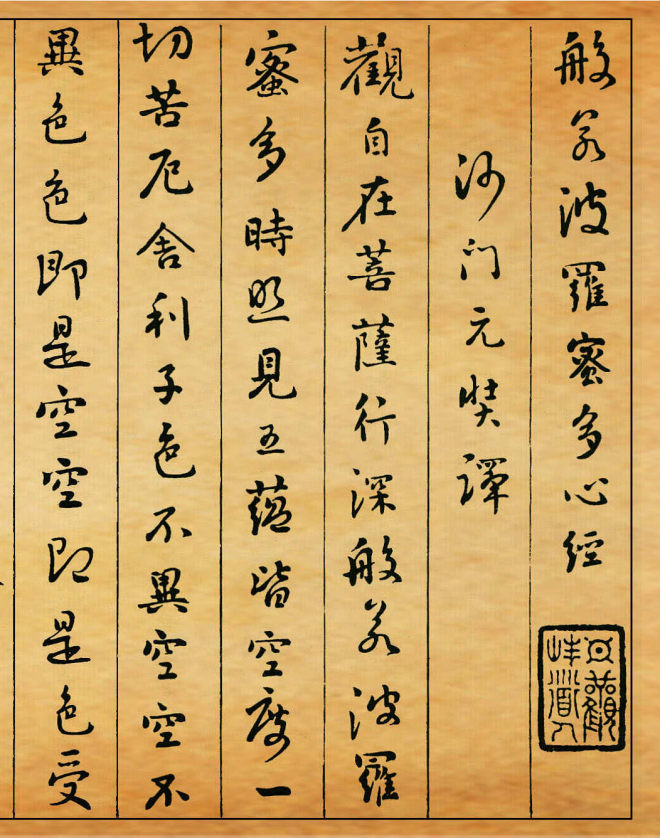 般若波羅蜜多心經
沙门元奘譯
觀自在菩薩行深般若波羅
蜜多時照見五蘊皆空度一
切苦厄舍利子色不異空空不
異色色即是空空即是色受